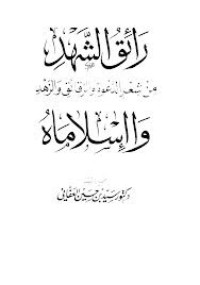 رائق الشهد
من شعر الدعوة والرقائق والزهد
وا إسلاماه
دكتور سيد بن حسين العفاني